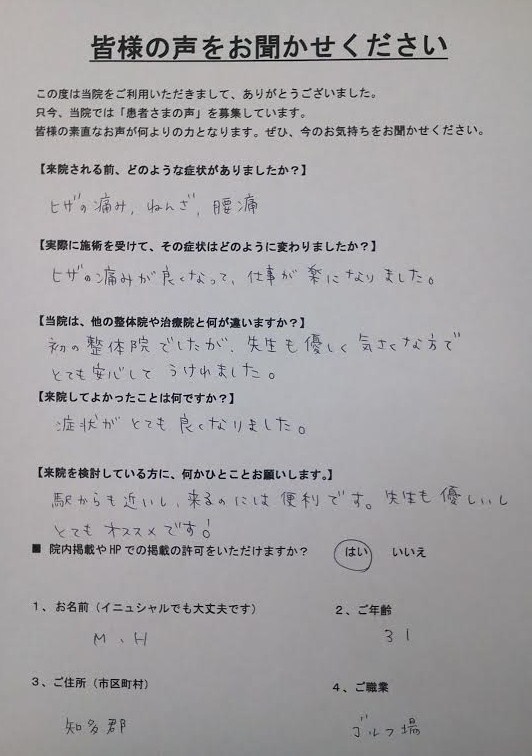 皆様の声をお聞かせください
この度は当院をご利用いただきまして、ありがとうございました。
只今、当院では「患者さまの声」を募集しています。
皆様の素直なお声が何よりの力となります。ぜひ、今のお気持ちをお聞かせください。
【来院される前、どのような症状がありましたか？】
ヒザの痛み，ねんざ，腰痛
【実際に施術を受けて、その症状はどのように変わりましたか？】
ヒザの痛みが良くなって、仕事が楽になりました。
【当院は、他の整体院や治療院と何が違いますか？】
初の整体院でしたが、先生も優しく気さくな方で
とても安心してうけれました。
【来院してよかったことは何ですか？】
症状がとても良くなりました。
【来院を検討している方に、何かひとことお願いします。】
駅からも近いし、来るのには便利です。先生も優しいし
とてもオススメです！
■ 院内掲載やHPでの掲載の許可をいただけますか？ はい いいえ
１、お名前（イニュシャルでも大丈夫です） ２、ご年齢
M、H 31
３、ご住所（市区町村） ４、ご職業
知多郡 ゴルフ場